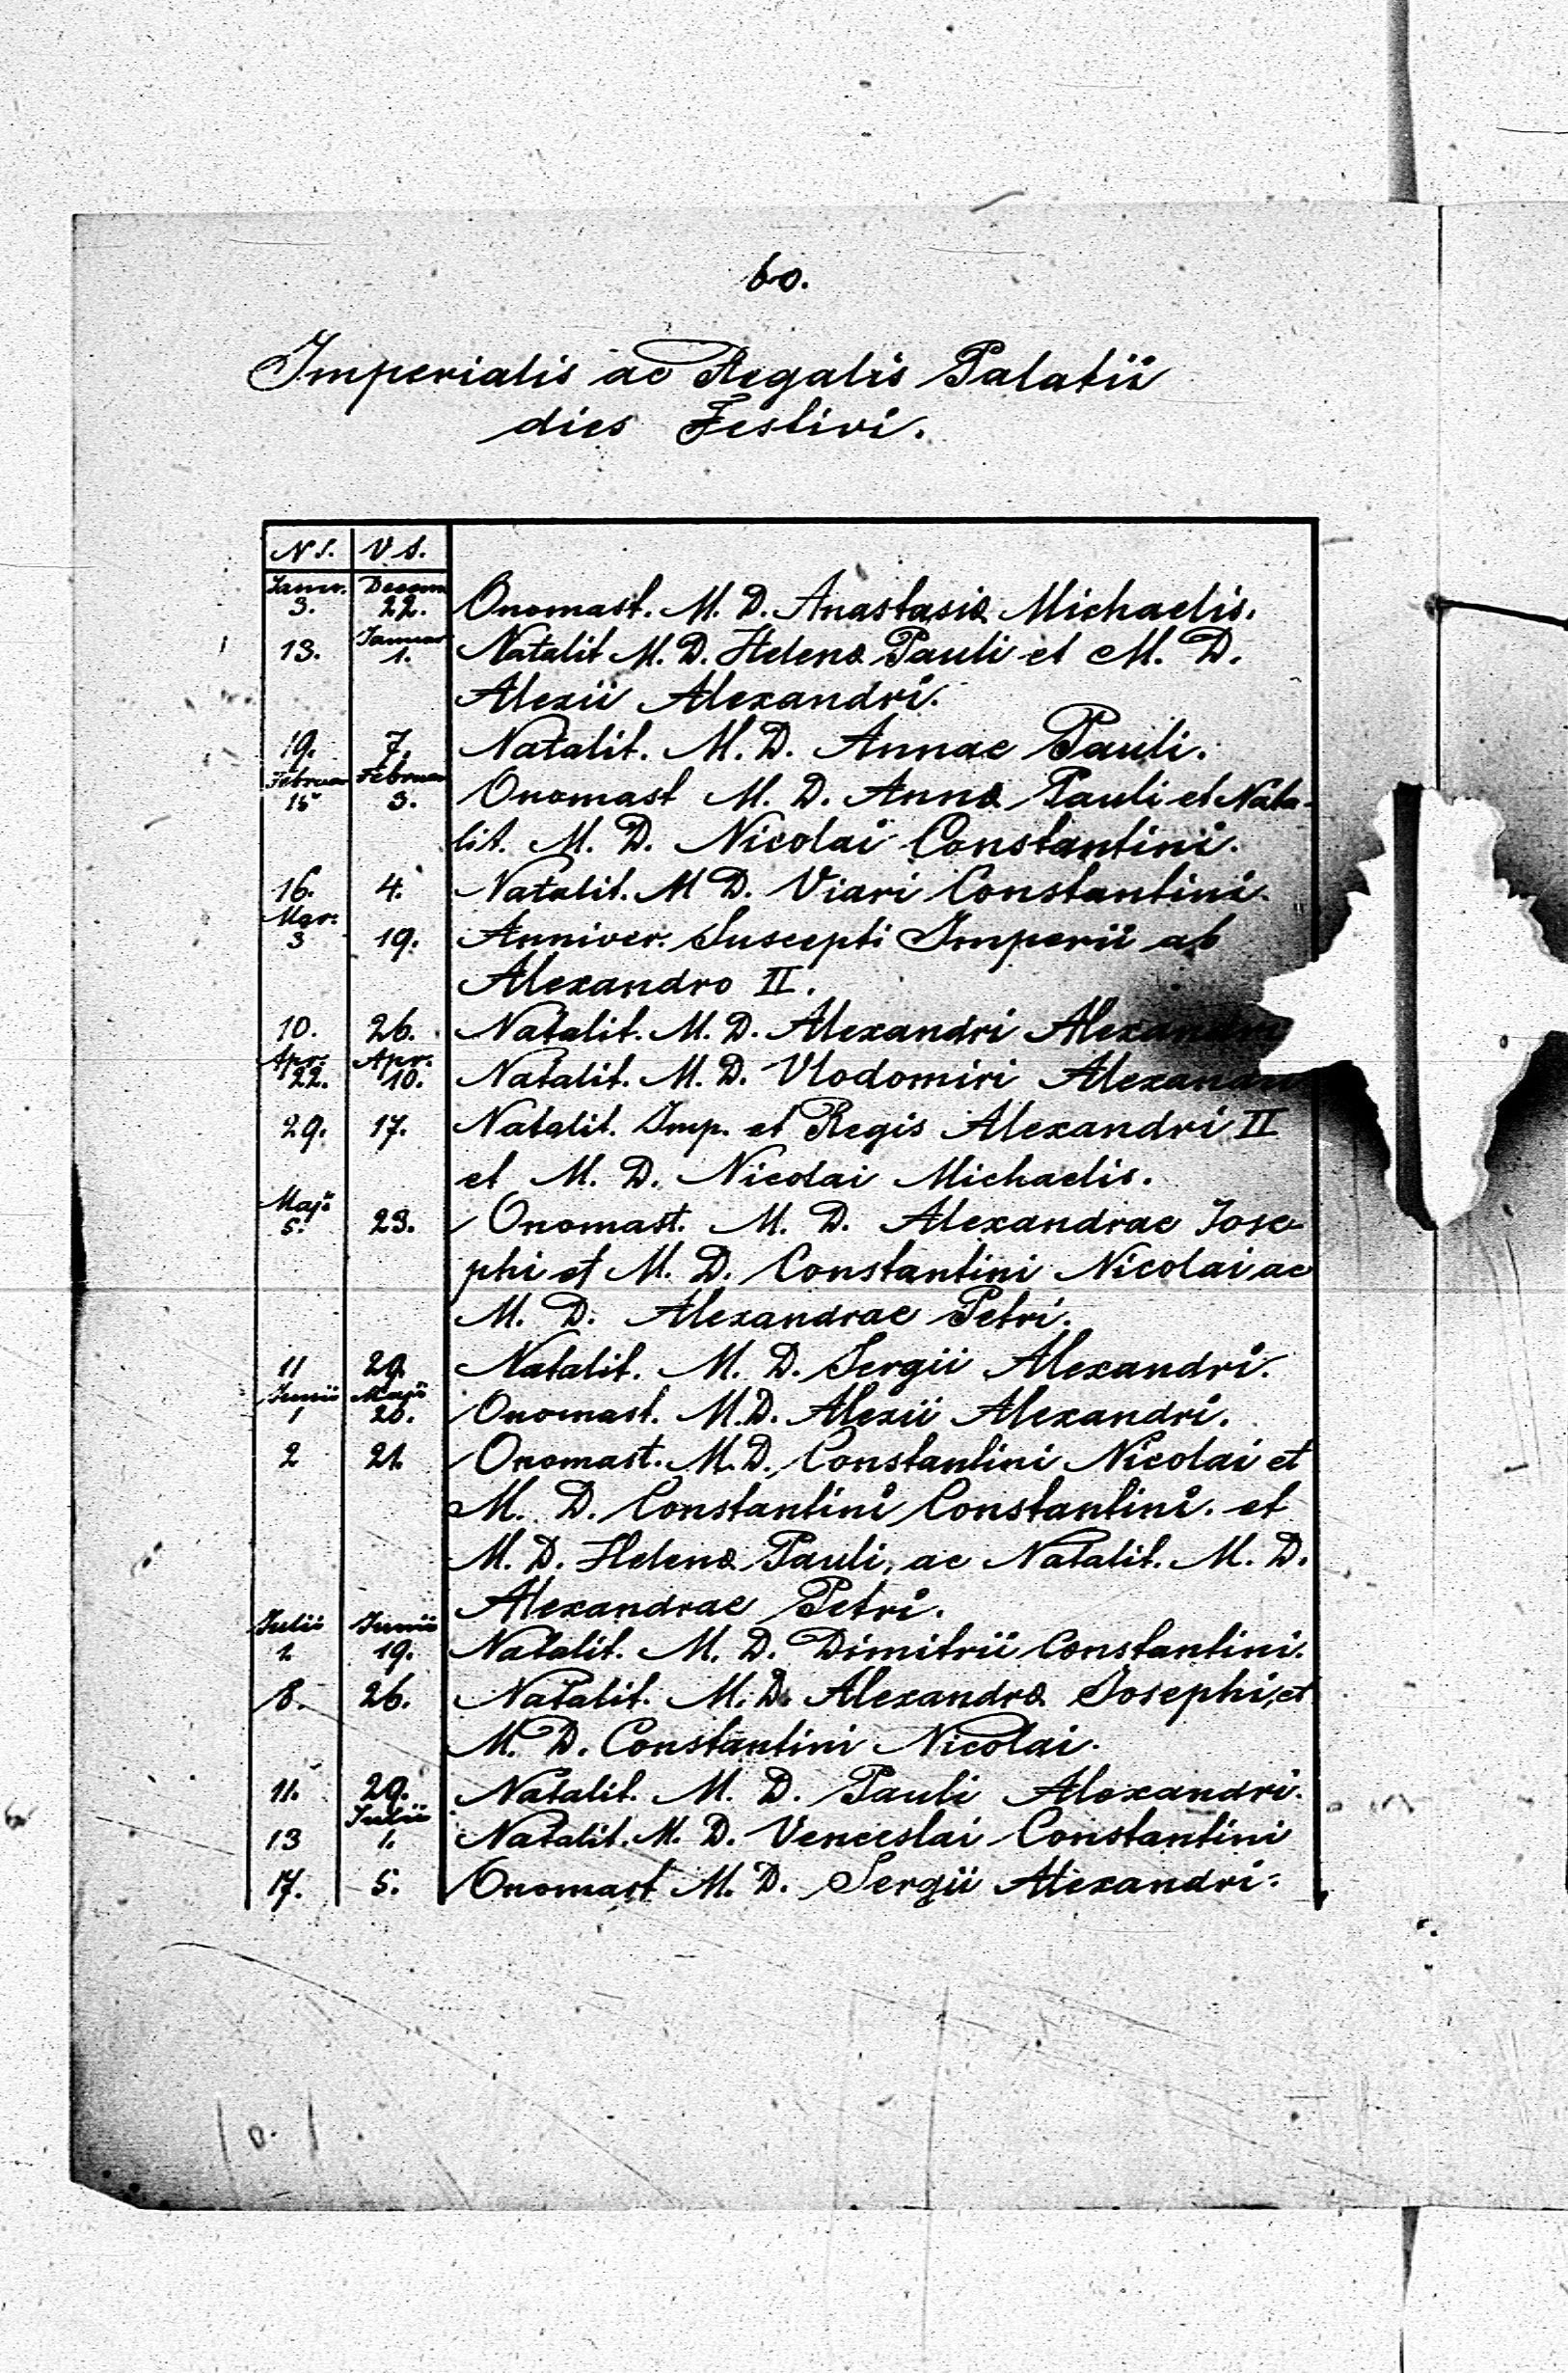 60.
Imperialis ac Regalis Palatii
dies Festivi.
N S. V S.
Januar. 3. Decem 22. Onomast. M. D. Anastasiæ Michaelis.
13. Januar 1. Natalit M. D. Helenæ Pauli et M. D.
Alexii Alexandri.
19. 7. Natalit. M. D. Annae Pauli.
Februar 15 Februar 3. Onomast M. D. Annæ Pauli et Nata-
lit. M. D. Nicolai Constantini.
16. 4. Natalit. M D. Viari Constantini.
Mar. 3 19. Anniver. Suscepti Imperii ab
Alexandro II.
10. 26. Natalit. M. D. Alexandri Alexandri
Apr. 22. Apr. 10. Natalit. M. D. Vlodomiri Alexandri
29. 17. Natalit. Imp. et Regis Alexandri II
et M. D. Nicolai Michaelis.
Maji 5. 23. Onomast. M. D. Alexandrae Jose-
phi et M. D. Constantini Nicolai ac
M. D. Alexandrae Petri.
11 29. Natalit. M. D. Sergii Alexandri.
Junii 1 Maji 20. Onomast. M. D. Alexii Alexandri.
2 21. Onomast. M. D. Constantini Nicolai et
M. D. Constantini Constantini. et
M. D. Helenæ Pauli, ac Natalit. M. D.
Alexandrae Petri.
Julii 1. Junii 19. Natalit. M. D. Dimitrii Constantini.
8. 26. Natalit. M. D. Alexandræ Josephi, et
M. D. Constantini Nicolai.
11. 29. Natalit. M. D. Pauli Alexandri.
13 Julii 1. Natalit. M. D. Venceslai Constantini
17. 5. Onomast M. D. Sergii Alexandri.